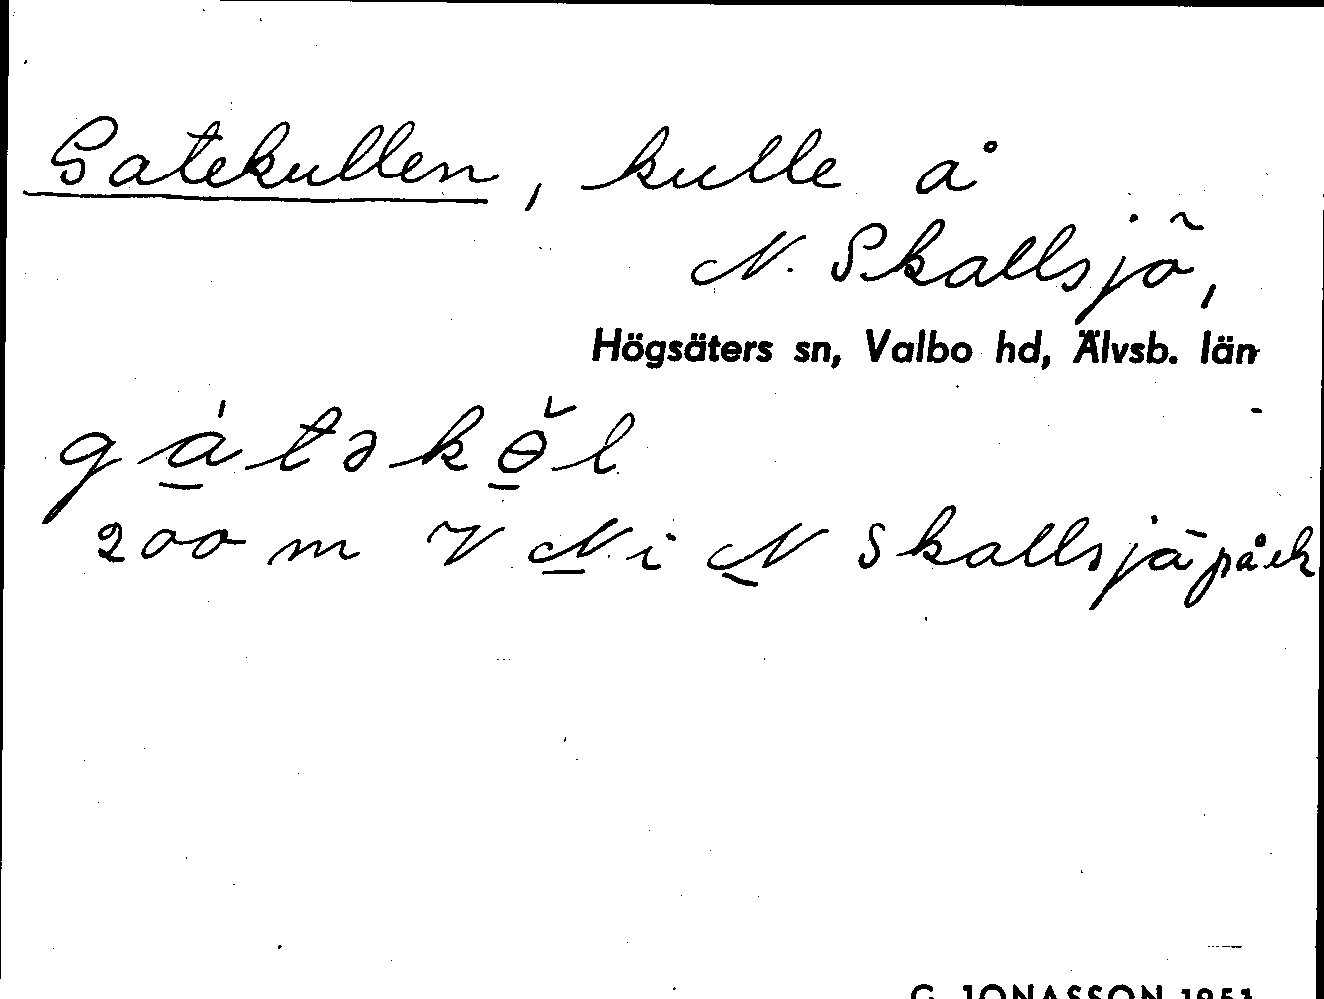 Gatekullen, kulle å
N. Skallsjö,
Högsäters sn, Valbo hd, Älvsb. län
gátəkɵ̌l
200 m V N i N Skallsjö på ek
G. JONASSON 1951